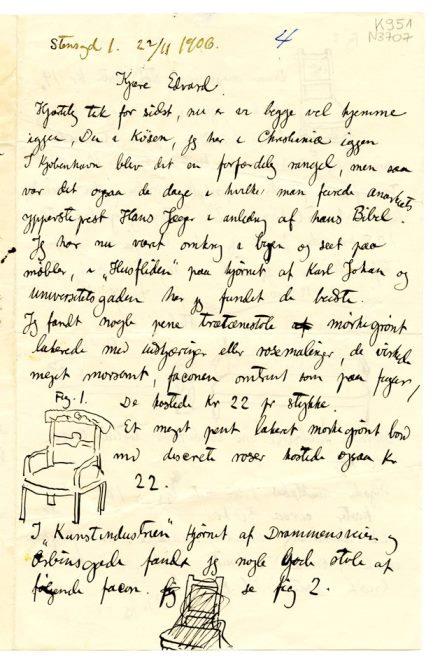 K951
N3707
Stensgd 1. 22/11 1906.
4
Kjære Edvard.
Hjærtelig tak for sidst, nu er vi begge vel hjemme
igjen, Du i Kösen, jeg her i Christiania igjen
I Kjøbenhavn blev det en forfærdelig rangel, men saa
var det ogsaa de dage i hvilke man feirede anarkiets
ypperstepræst Hans Jæger i anledng af hans Bibel.
Jeg har nu været omkring i byen og seet paa
møbler, i "Husfliden" paa hjørnet af Karl Johan og
Universitetsgaden har jeg fundet de bedste.
Jeg fandt nogle pene mørkegrønt
lakerede med udskjæringer eller rosemalinger, de virkede
meget morsomt, faconen omtrent som paa figuren,
Fig. 1.
De kostede Kr 22 pr stykke.
Et meget pent lakert mørkegrønt bord
med discrete roser kostede ogsaa Kr
22.
I "Kunstindustrien" hjørnet af Drammensveien og
fandt jeg nogle gode stole af
følgende facon. se fig 2.